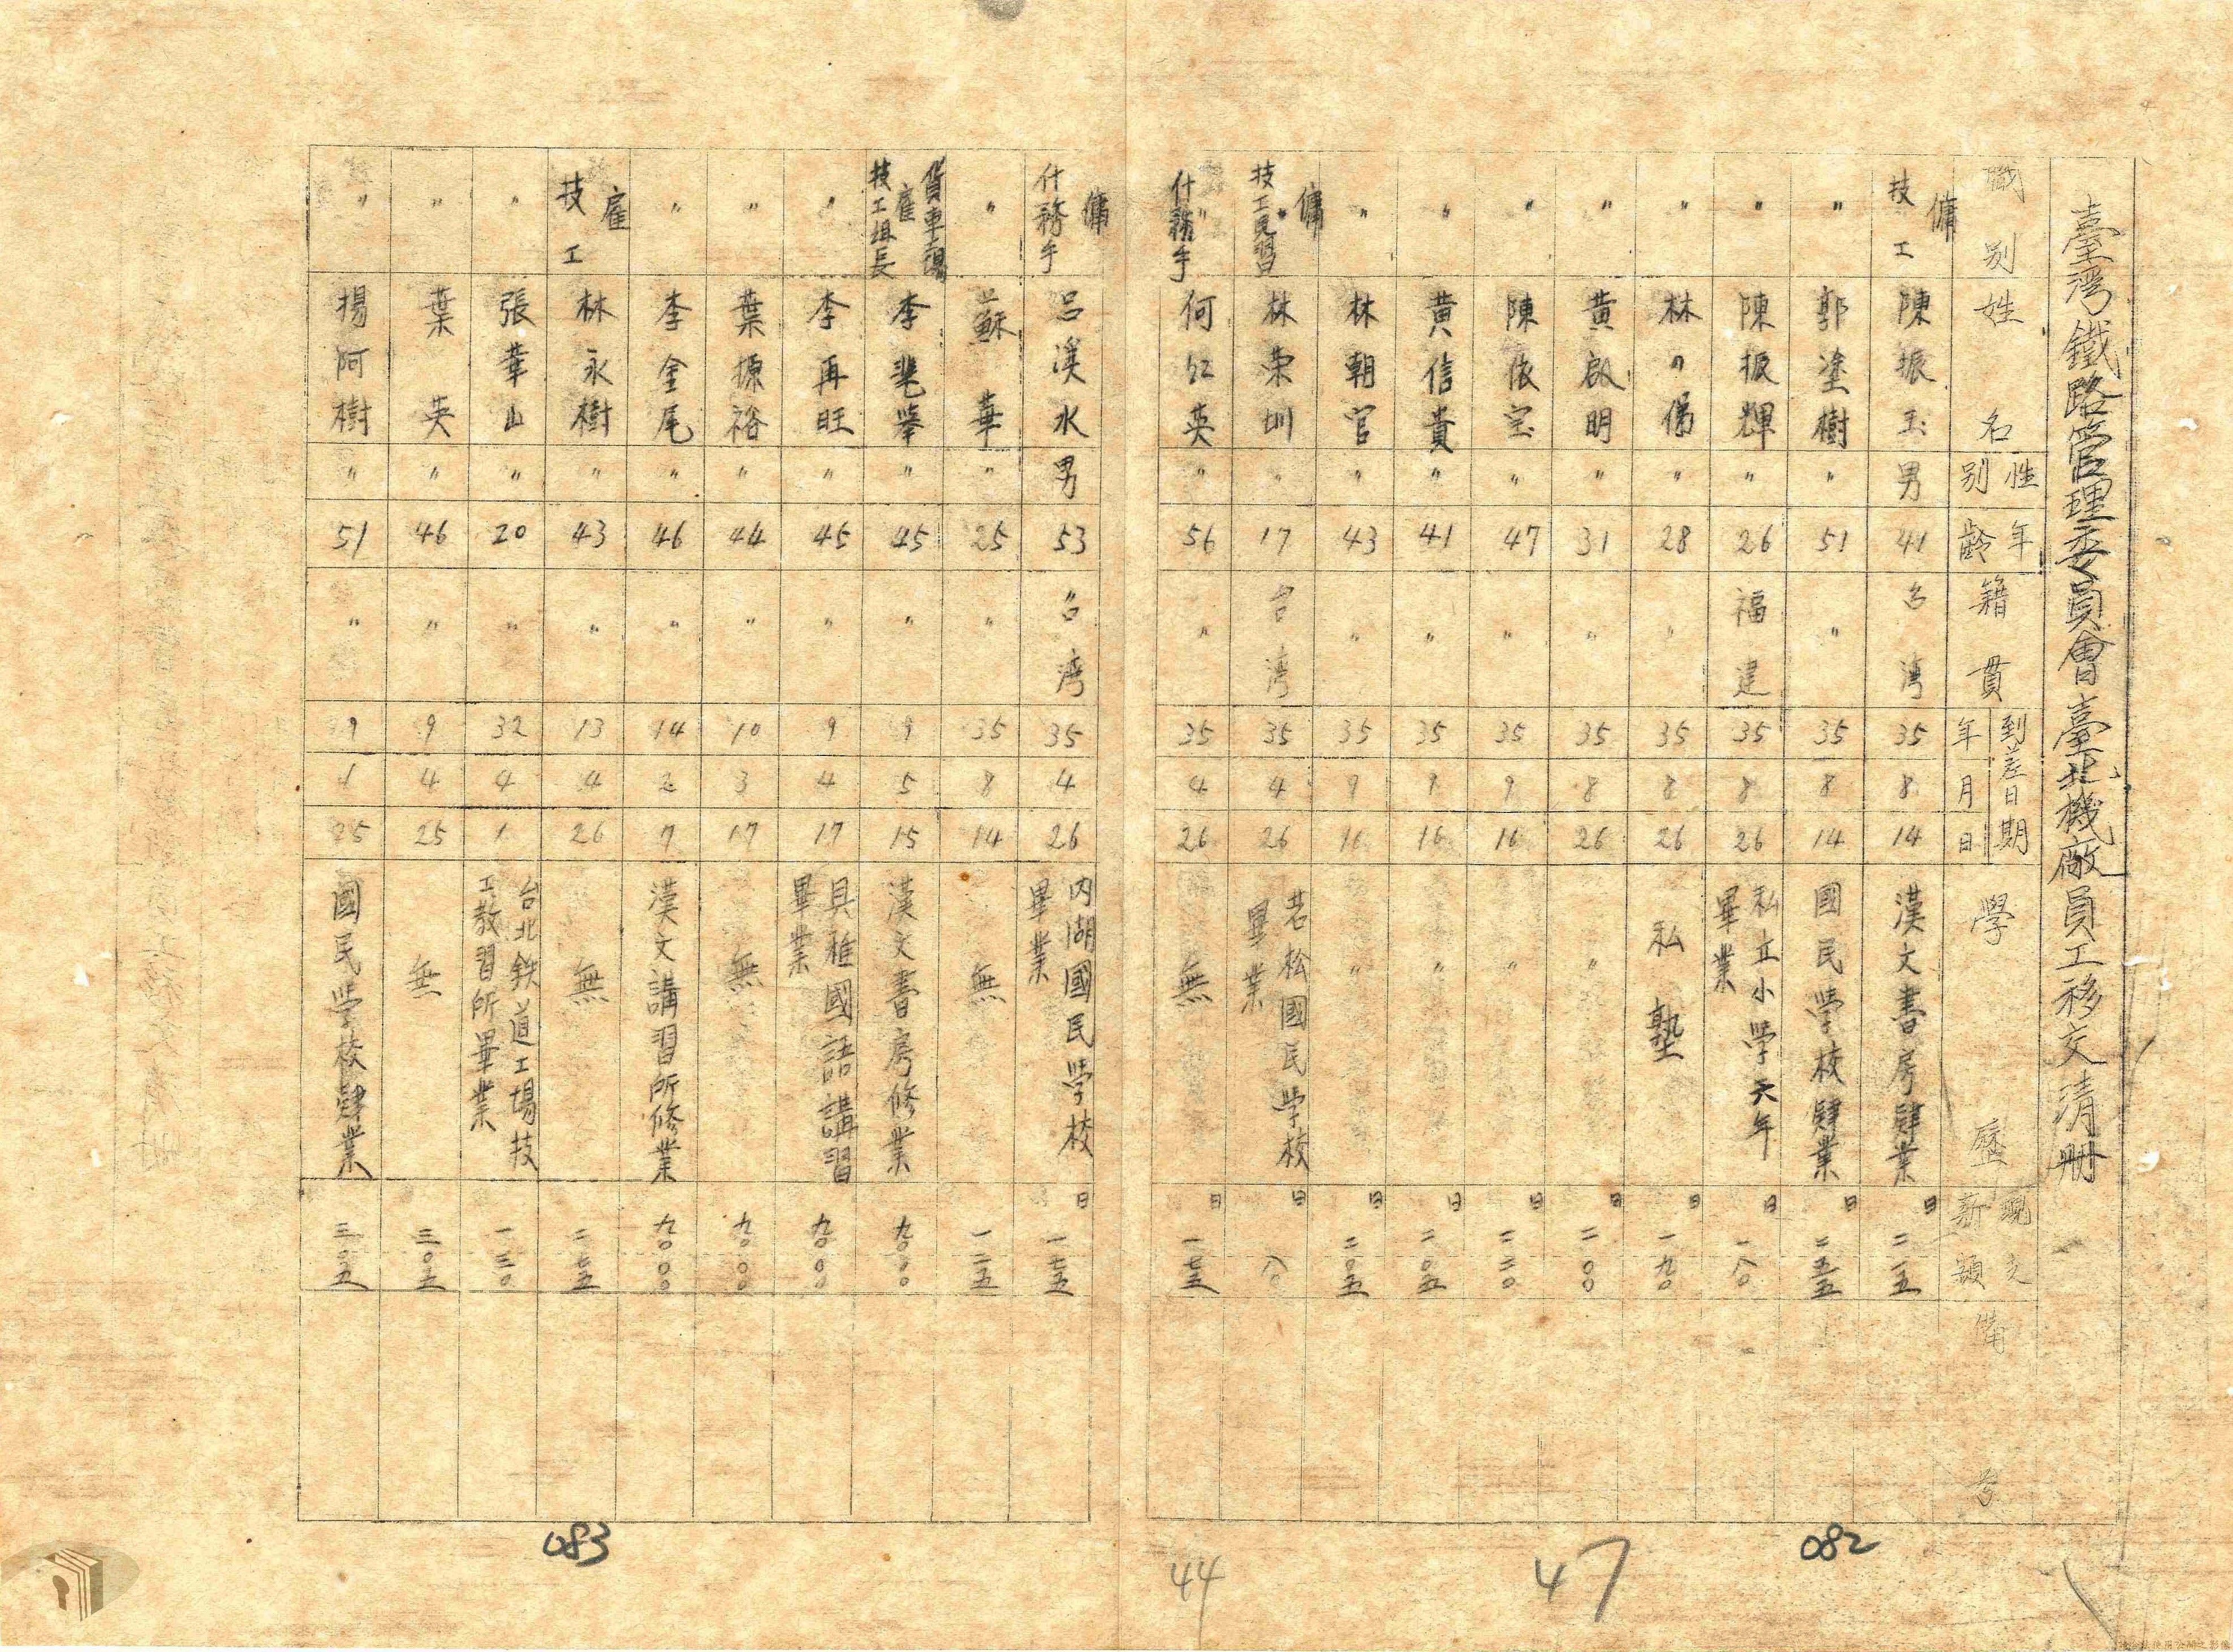 臺灣鐵路管理委員會臺北機廠員工移交清册
職別 姓名 性別 年齡 籍貫 到差日期 年 月 日 學歷 現支薪額 備考
傭 技工 陳振玉 男 41 台灣 35 8 14 漢文書房肄業 日 二一五
〃 郭塗樹 〃 51 〃 35 8 14 國民學校肄業 日 二五五
〃 陳振輝 〃 26 福建 35 8 26 私立小學六年畢業 日 一八〇
〃 林 〃 28 〃 35 8 26 私塾 日 一九〇
〃 黃啟明 〃 31 〃 35 8 26 〃 日 二〇〇
〃 陳依宝 〃 47 〃 35 9 16 〃 日 二二〇
〃 黃信貴 〃 41 〃 35 9 16 〃 日 二〇五
〃 林朝官 〃 43 〃 35 9 16 〃 日 二〇五
傭 技工見習 林荣圳 〃 17 台灣 35 4 26 若松國民学校畢業 日 八〇
什務手 何红英 〃 56 〃 35 4 26 無 日 一七五
082
47
44
傭 什務手 呂溪水 男 53 台湾 35 4 26 内湖國民学校畢業 日 一七五
〃 蘇華 〃 25 〃 35 8 14 無 一二五
貨車場 雇 技工組長 李 〃 45 〃 9 5 15 漢文書房修業 九〇〇〇
〃 李再旺 〃 45 〃 9 4 17 具稚國語講習畢業 九〇〇〇
〃 葉振裕 〃 44 〃 10 3 17 無 九〇〇〇
〃 李金尾 〃 46 〃 14 2 7 漢文講習所修業 九〇〇〇
雇 技工 林永樹 〃 43 〃 13 4 26 無 二七五
〃 張華山 〃 20 〃 32 4 1 台北鉄道工場技工教習所畢業 一三〇
〃 葉英 〃 46 〃 9 4 25 無 三〇五
〃 楊阿樹 〃 51 〃 9 1 25 國民学校肄業 三〇五
083